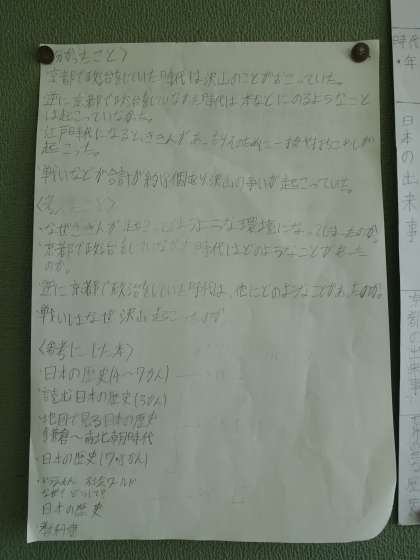 わかったこと〉
京都で政治をしていた時代は沢山のことがおこっていた。
逆に京都で政治をしていなかった時代は本などにのるようなこと
は起こっていなかった。
江戸時代になるとききんがあったりそのために一揆や打ちこわしが
起こった。
戦いなどが合計が約 個あり沢山の争いが起こっていた。
なぜききんが起こってしまうような環境になってしまったのか。
京都で政治をしていなかった時代はどのようなことがあった
のか。
逆に京都で政治をしていた時代は、他にどのようなことがあったのか。
戦いはなぜ沢山起こったのか
〈参考にした本〉
日本の歴史(4〜7かん)
日本の歴史(5かん)
地図で見る日本の歴史
鎌倉〜南北朝時代
日本の歴史(7・8かん)
ドラえもん 社会ワールド
なぜ?どうして?
日本の歴史
教科書
時代
・年
日本の出来事
京都の出来事